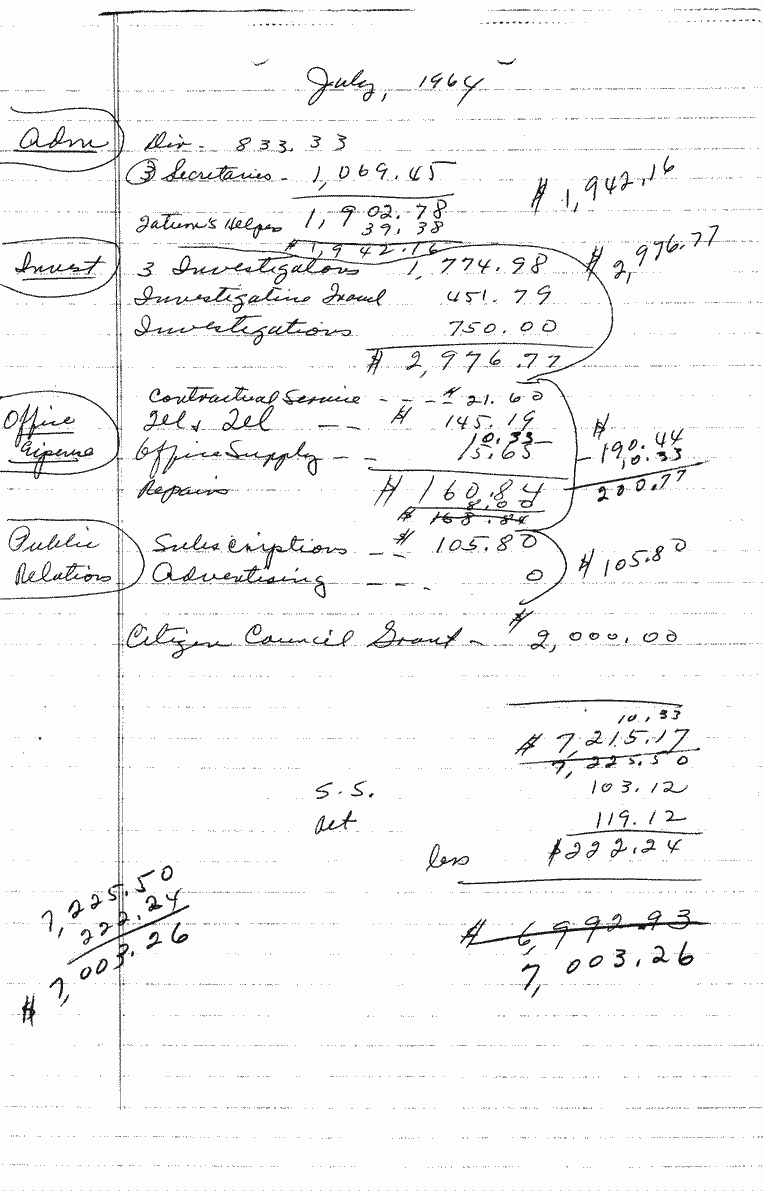 July, 1964
Adm
Dir - 833.33
3 Secretaries - 1,069.45
$ 1,942.16
1,902.78
Helper 39.38
$ 1,942.16
Invest
3 Investigators 1,774.98
$ 2,976.77
Investigative Travel 451.79
Investigations 750.00
$ 2,976.77
Office Expense
Contractual Service - - - $ 21.60
Tel & Tel - - $ 145.19
10.33
Office Supply - - 15.65
$ 190.44
10.33
200.77
$ 160.84
Repairs 8.00
$ 168.84
Public Relations
Subscriptions - - $ 105.80
Advertising - - - 0
$ 105.80
Citizen Council Grant - $ 2,000.00
10.33
$ 7,215.17
7,225.50
S.S. 103.12
Ret 119.12
less $222.24
7,225.50
222.24
$ 7,003.26
$ 6,992.93
7,003.26